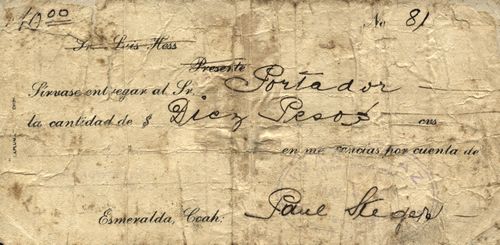 10.00 No 81
Sr. Luis Hess
Presente
Sírvase entregar al Sr. Portador
la cantidad de $ Diez Pesos cvs
en mercancias por cuenta de
Esmeralda, Coah. Paul Steger